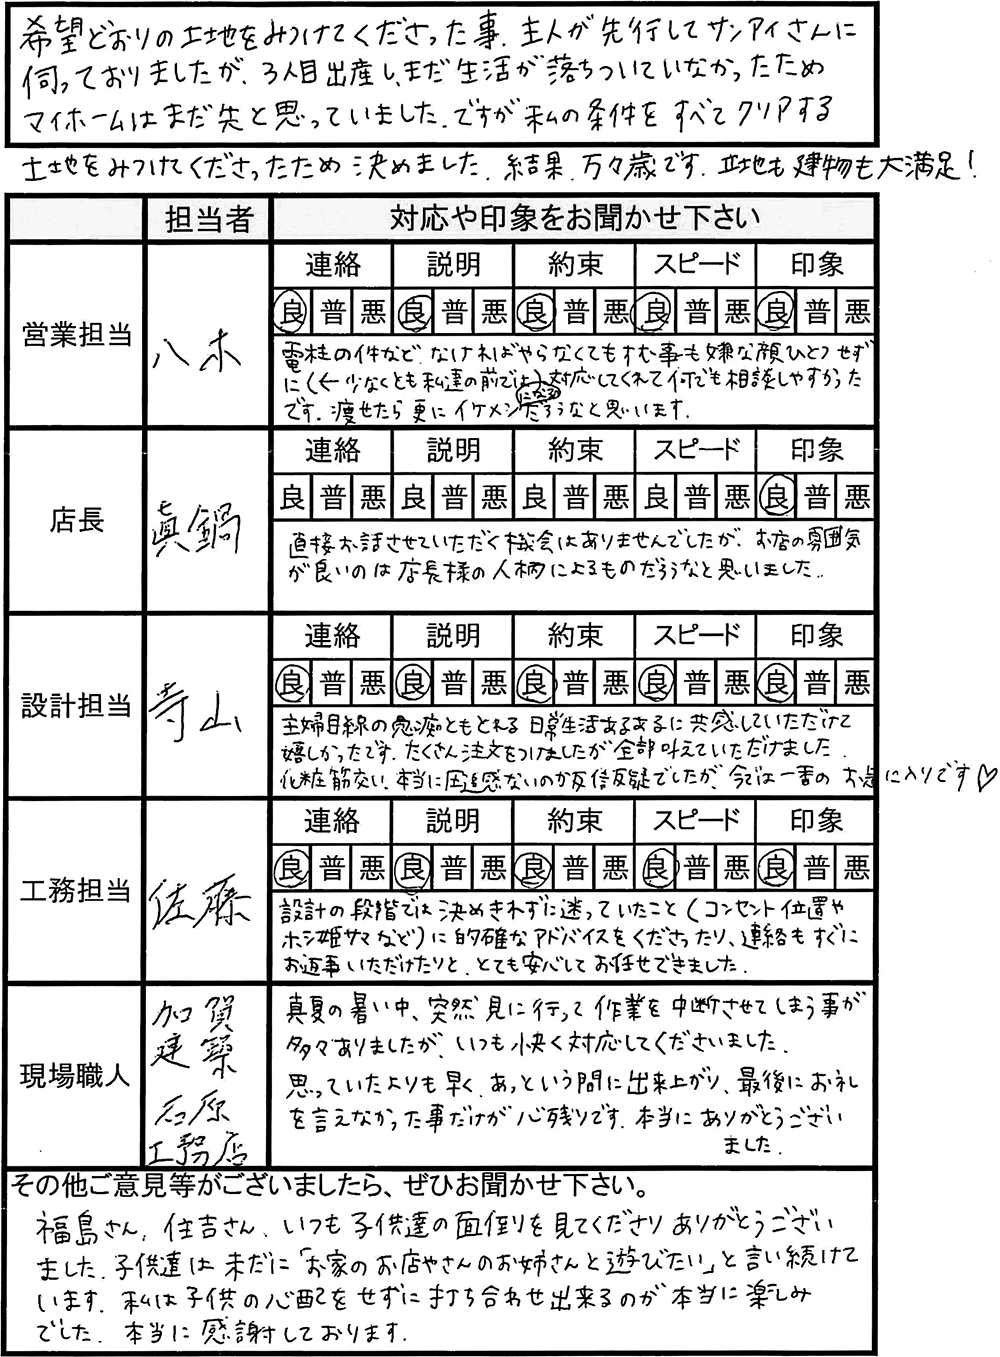 希望どおりの土地をみつけてくださった事．主人が先行してサンアイさんに
伺っておりましたが、3人目出産し、まだ生活が落ちついていなかったため
マイホームはまだ先と思っていました．ですが私の条件をすべてクリアする
土地をみつけてくださったため決めました．結果．万々歳です．立地も建物も大満足！
担当者 対応や印象をお聞かせ下さい
営業担当 八木
連絡 説明 約束 スピード 印象
良 普 悪 良 普 悪 良 普 悪 良 普 悪 良 普 悪
電柱の件など、なければやらなくてもすむ事も嫌な顔ひとつせず
に(←少なくとも私達の前では)対応してくれて何でも相談しやすかった
です．痩せたら更にイケメンになるだろうなと思います．
店長 眞鍋
連絡 説明 約束 スピード 印象
良 普 悪 良 普 悪 良 普 悪 良 普 悪 良 普 悪
直接お話させていただく機会はありませんでしたが、お店の雰囲気
が良いのは店長様の人柄によるものだろうなと思いました．．
設計担当 寺山
連絡 説明 約束 スピード 印象
良 普 悪 良 普 悪 良 普 悪 良 普 悪 良 普 悪
主婦目線の愚痴ともとれる日常生活あるあるに共感していただけて
嬉しかったです．たくさん注文をつけましたが全部叶えていただけました．
化粧筋交い、本当に圧迫感ないのか反信反疑でしたが、今では一番のお気に入りです♡
工務担当 佐藤
連絡 説明 約束 スピード 印象
良 普 悪 良 普 悪 良 普 悪 良 普 悪 良 普 悪
設計の段階では決めきれずに迷っていたこと(コンセント位置や
ホシ姫サマなど)に的確なアドバイスをくださったり、連絡もすぐに
お返事いただけたりと、とても安心してお任せできました．
現場職人 加賀建築 石原工務店
真夏の暑い中、突然見に行って作業を中断させてしまう事が
多々ありましたが、いつも快く対応してくださいました．
思っていたよりも早く、あっという間に出来上がり、最後にお礼
を言えなかった事だけが心残りです．本当にありがとうござい
ました．
その他ご意見等がございましたら、ぜひお聞かせ下さい。
福島さん、住吉さん、いつも子供達の面倒を見てくださりありがとうござい
ました．子供達は未だに「お家のお店やさんのお姉さんと遊びたい」と言い続けて
います．私は子供の心配をせずに打ち合わせ出来るのが本当に楽しみ
でした．本当に感謝しております．